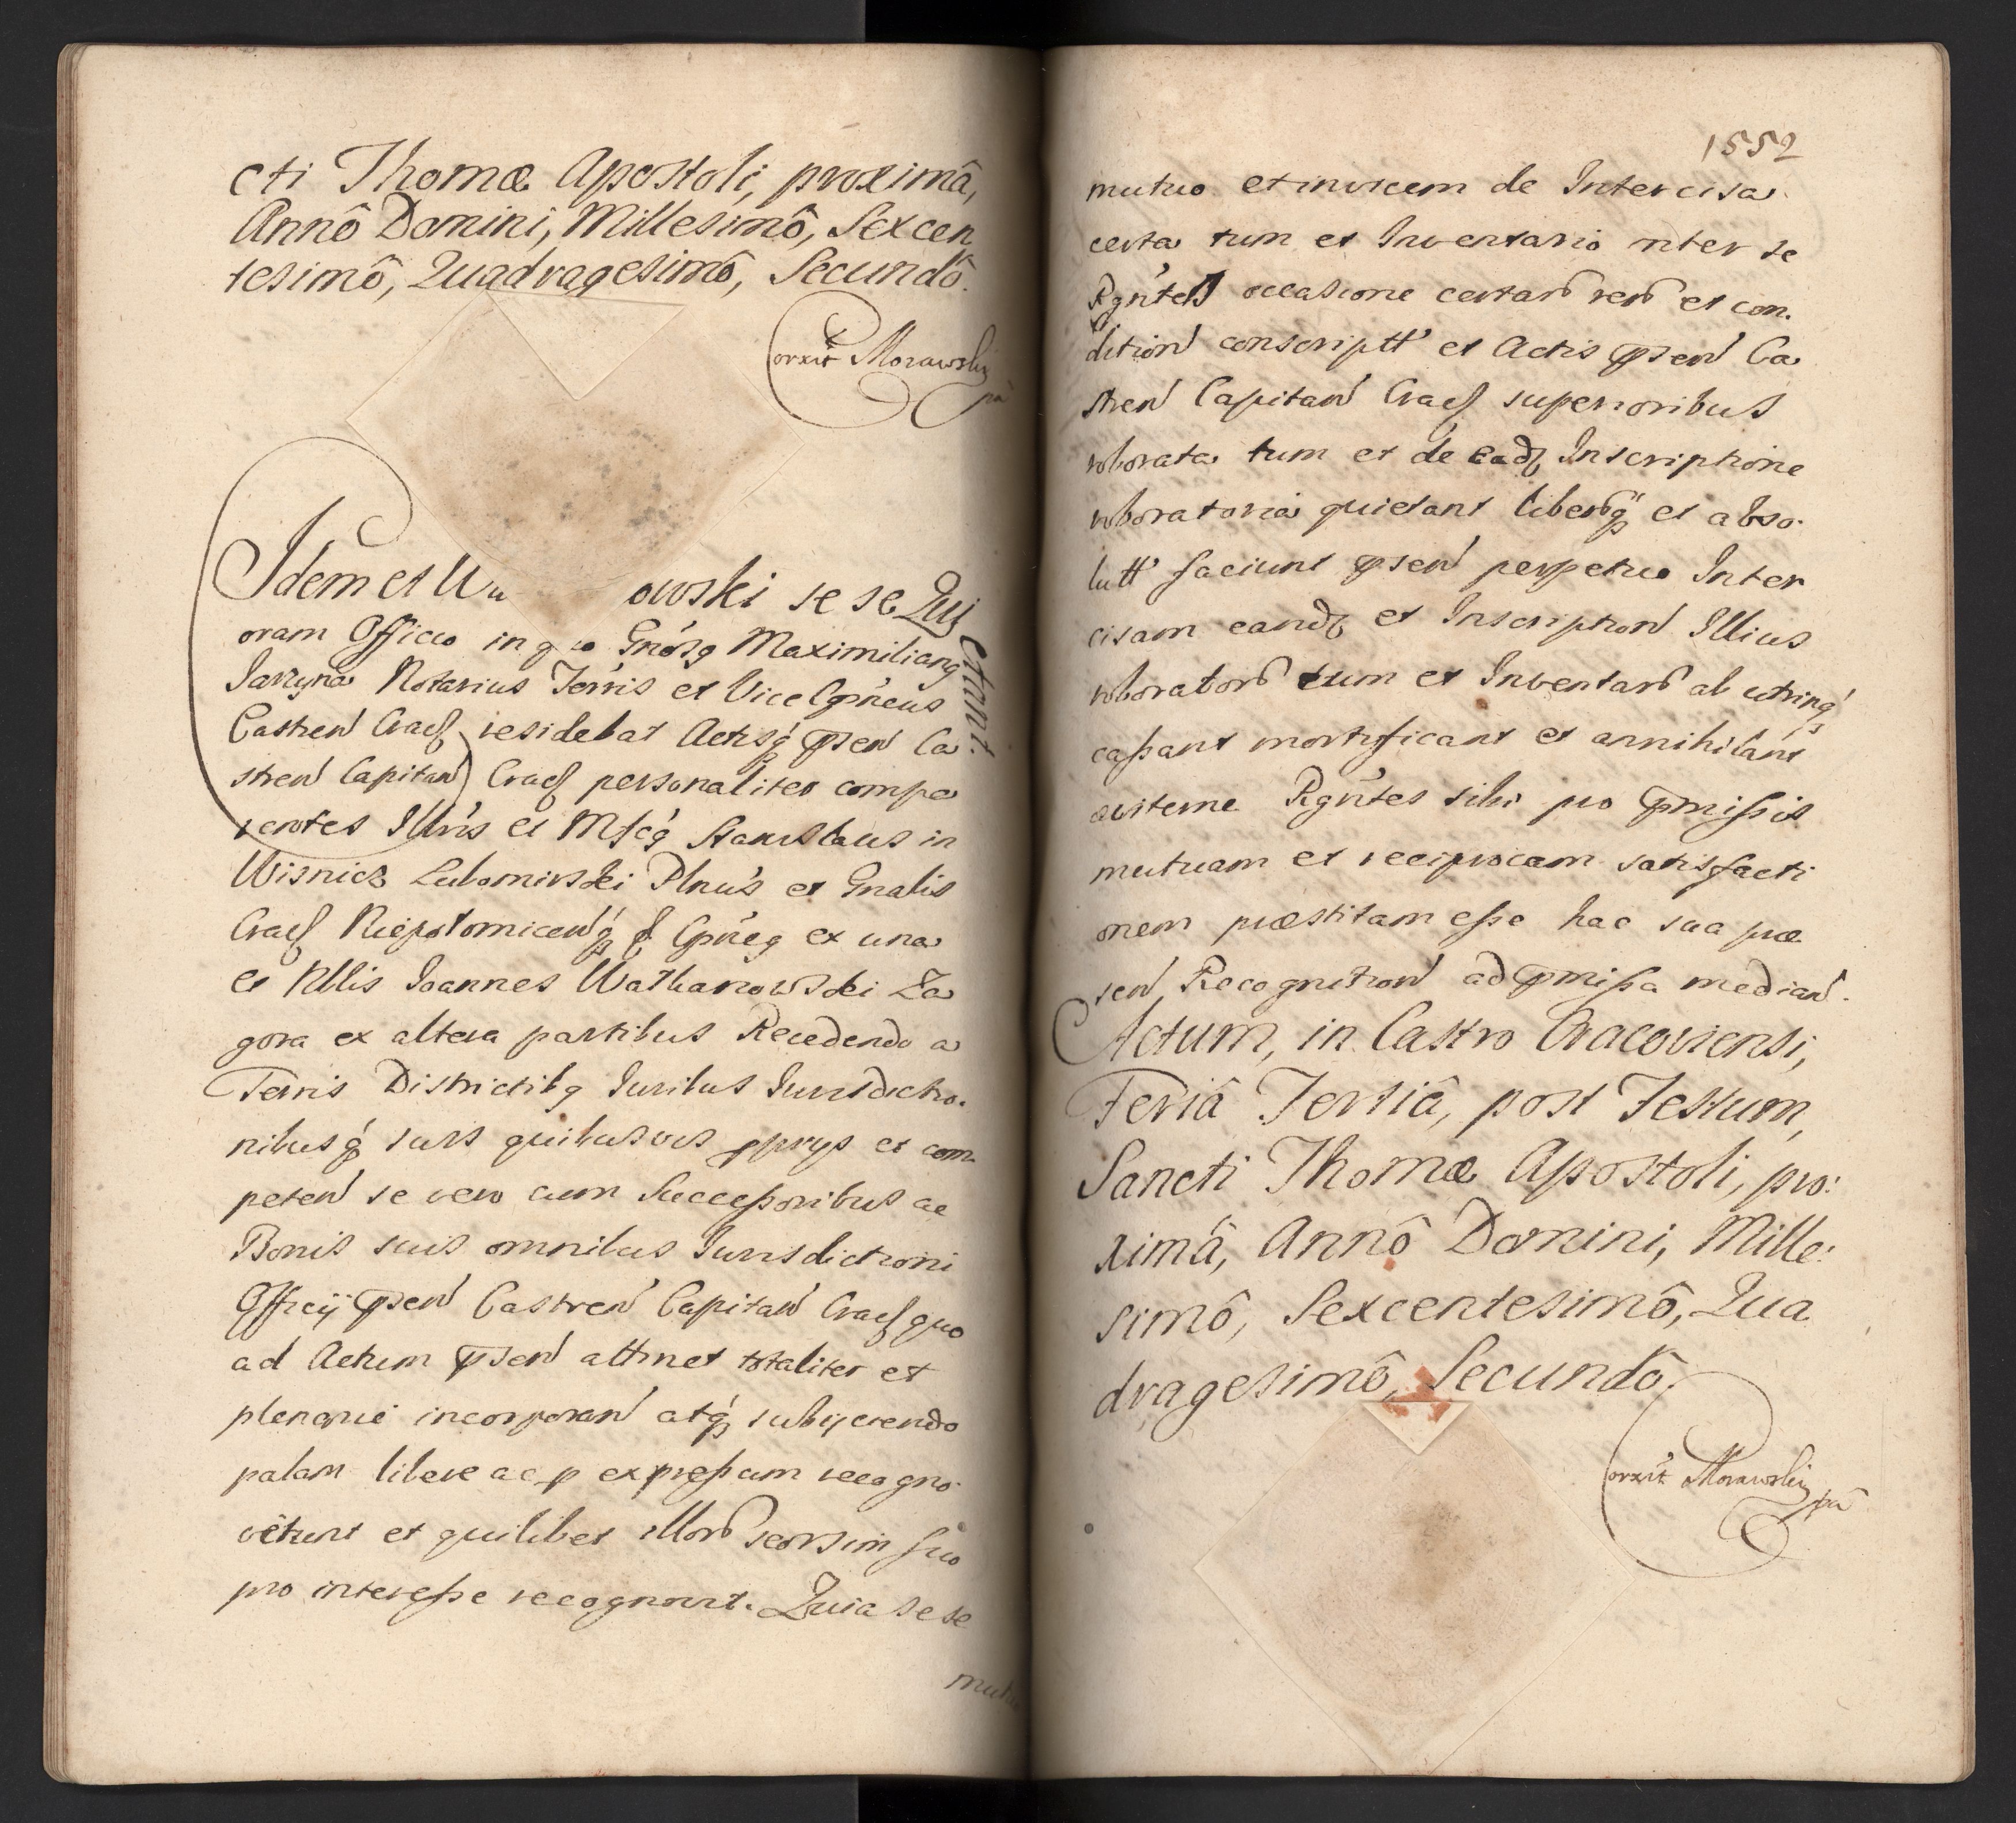 cti Thomæ Apostoli, proximâ,
Annô Domini, Millesimô, Sexcen
tesimô, Quadragesimô, Secundô.
Corxit Morawski
pa
Idem et Wa owski se se Qui
etant.
oram Officio in quo Gnósq Maximilianq
Jarzyna Notarius Terris et Vice Cpńeus
Castren Cracȝ residebat Actisq́ȝ pñsen Ca
stren Capitan Cracȝ personaliter compa
rentes Illrís et Mfcq́ Stanislaus in
Wisnicz Lubomirski Plnús et Gnalis
Cracȝ Niepolomicenq́ȝ Cpńeq ex una
et Nblis Joannes Wathanowski Za
gora ex altera partibus Recedendo a
Terris Districtibq Juribus Jurisdictio.
nibusq́ȝ suis quibusvis pprys et com
peten se vero cum Succeßoribus ac
Bonis suis omnibus Jurisdictioni
Officij pñsen Castren Capitan Cracȝ quo
ad Actum pñsen attinet totaliter et
plenarie incorporan atq́ȝ subijciendo
palam libere ac p expreßum recogno.
verunt et quilibet illorꝫ seorsim suo
pro intereße recognovit. Quia se se
mutuo
1552
mutuo et invicem de Intercisa
certa tum et Inventario nter se
Rgńtes occasione certarꝫ rerꝫ et con.
dition conscriptt' et Actis pñsen Ca
stren Capitan Cracȝ superioribus
roborata tum et de eadȝ Inscriptione
roboratoria quietant liberosq́ȝ et abso.
lutt' faciunt pñsen perpetuo Inter
cisam eandȝ et Inscription Illius
roboratorꝫ tum et Inventarꝫ ab utrinq́ȝ
caßant mortificant et annihilant
aviterne Rgńtes sibi pro pmißis
mutuam et reciprocam satisfacti
onem præstitam eße hac sua præ
sen Recognition ad pmißa median.
Actum, in Castro Cracoviensi,
Feriâ Tertiâ, post Festum,
Sancti Thomæ Apostoli, pro:
ximâ, Annô Domini, Mille:
simô, Sexcentesimô, Qua
dragesimô, Secundô.
Corxit Morawski
pa